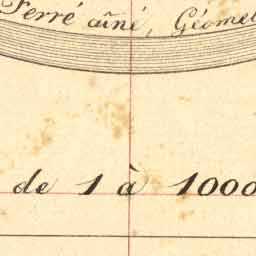 Ferré aîné, Géomet
de 1 à 1000